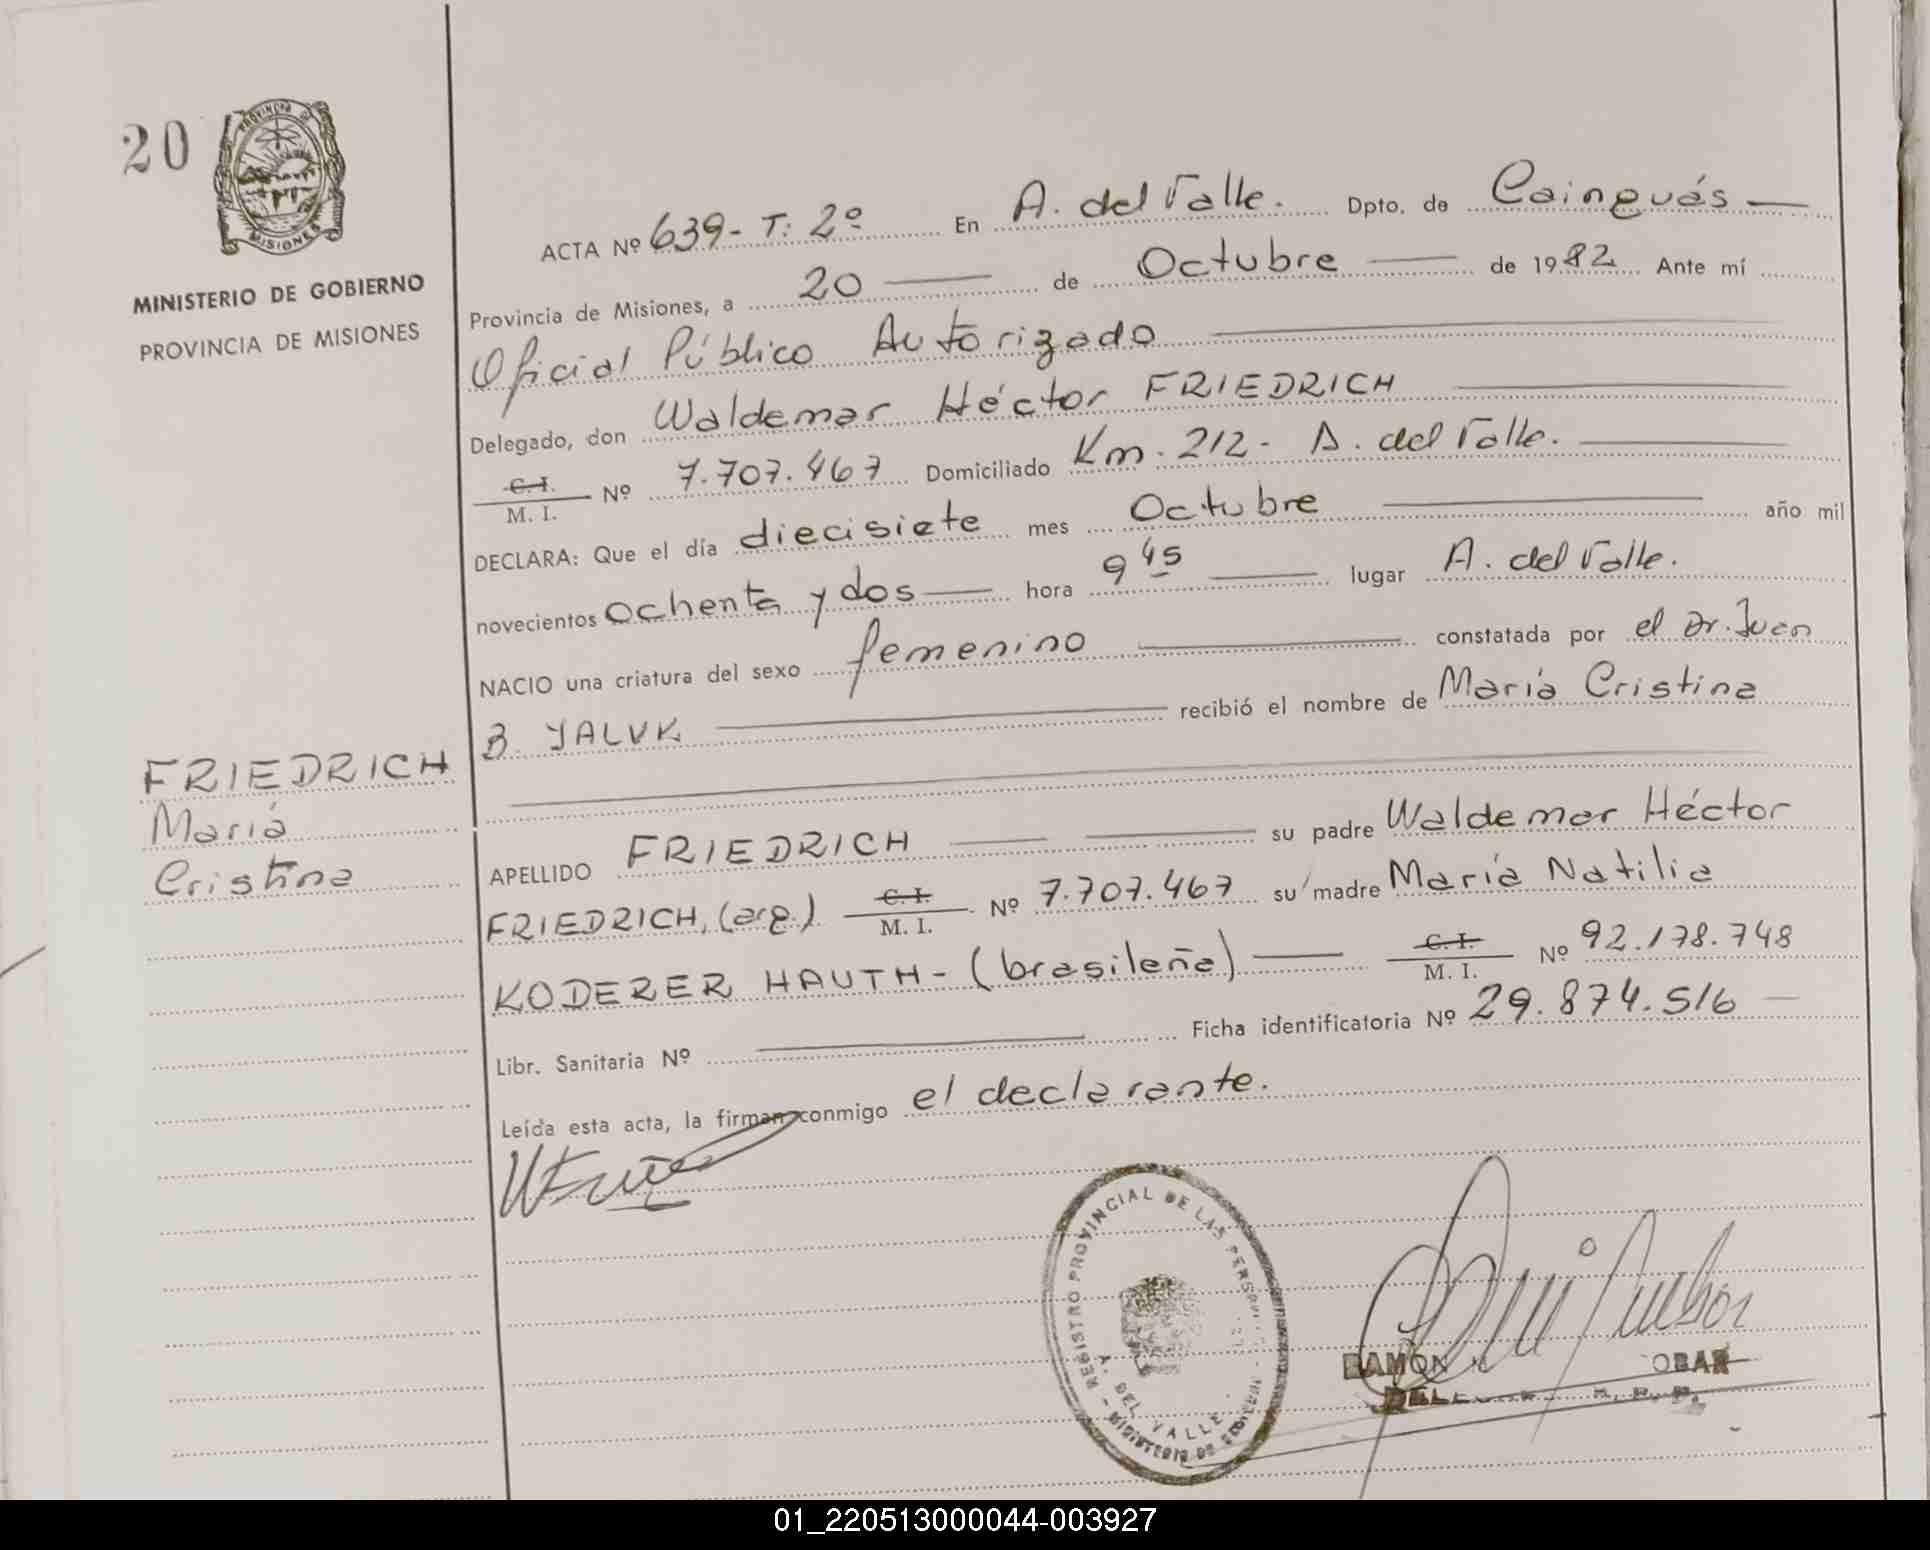 20
PROVINCIA DE
MISIONES
MINISTERIO DE GOBIERNO
PROVINCIA DE MISIONES
ACTA Nº 639- T: 2º En A. del Valle. Dpto. de Cainguás
Provincia de Misiones, a 20 de Octubre de 1982 Ante mí
Oficial Público Autorizado
Delegado, don Waldemar Héctor FRIEDRICH
C. I. / M. I. Nº 7.707.467 Domiciliado Km. 212- A. del Valle.
DECLARA: Que el día diecisiete mes Octubre año mil
novecientos ochenta y dos hora 9 45 lugar A. del Valle.
NACIO una criatura del sexo femenino constatada por el Dr. Juan
B. YALUK recibió el nombre de María Cristina
FRIEDRICH
María
Cristina
APELLIDO FRIEDRICH su padre Waldemar Héctor
FRIEDRICH, (arg.) C. I. / M. I. Nº 7.707.467 su madre María Natilia
KODERER HAUTH - (brasileña) C. I. / M. I. Nº 92.178.748
Libr. Sanitaria Nº Ficha identificatoria Nº 29.874.516
Leída esta acta, la firman conmigo el declarante.
REGISTRO PROVINCIAL DE LAS
A. DEL VALLE
MINISTERIO DE
RAMON
OBAR
01_220513000044-003927